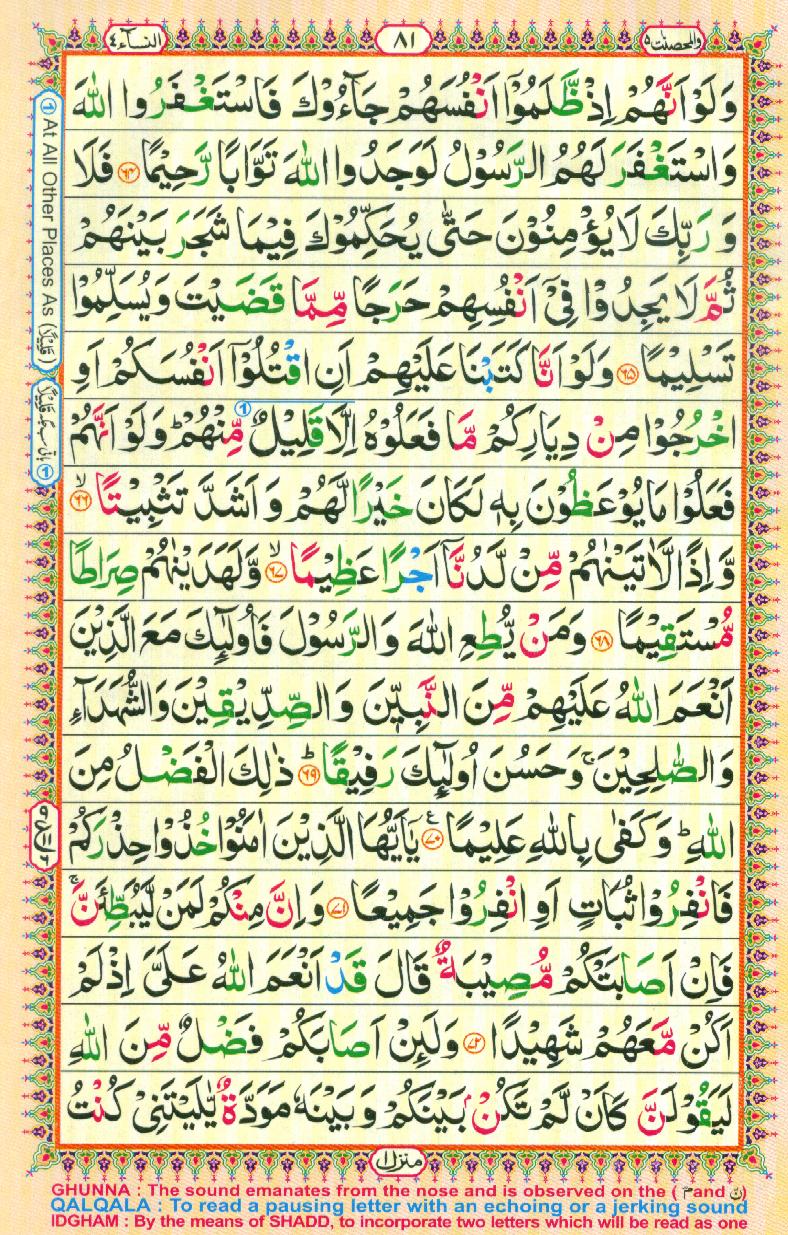 النسآء ٤
٨١
والمحصنٰت ٥
وَلَوْ اَنَّهُمْ اِذْ ظَّلَمُوْۤا اَنْفُسَهُمْ جَآءُوْكَ فَاسْتَغْفَرُوا اللّٰهَ
وَاسْتَغْفَرَ لَهُمُ الرَّسُوْلُ لَوَجَدُوا اللّٰهَ تَوَّابًا رَّحِيْمًا ۝٦٤ فَلَا
وَ رَبِّكَ لَا يُؤْمِنُوْنَ حَتّٰى يُحَكِّمُوْكَ فِيْمَا شَجَرَ بَيْنَهُمْ
ثُمَّ لَا يَجِدُوْا فِيْۤ اَنْفُسِهِمْ حَرَجًا مِّمَّا قَضَيْتَ وَيُسَلِّمُوْا
تَسْلِيْمًا ۝٦٥ وَلَوْ اَنَّا كَتَبْنَا عَلَيْهِمْ اَنِ اقْتُلُوْۤا اَنْفُسَكُمْ اَوِ
اخْرُجُوْا مِنْ دِيَارِكُمْ مَّا فَعَلُوْهُ اِلَّا قَلِيْلٌ مِّنْهُمْ ؕ وَلَوْ اَنَّهُمْ
فَعَلُوْا مَا يُوْعَظُوْنَ بِهٖ لَكَانَ خَيْرًا لَّهُمْ وَ اَشَدَّ تَثْبِيْتًا ۙ۝٦٦
وَّ اِذًا لَّاٰتَيْنٰهُمْ مِّنْ لَّدُنَّاۤ اَجْرًا عَظِيْمًا ۙ۝٦٧ وَّلَهَدَيْنٰهُمْ صِرَاطًا
مُّسْتَقِيْمًا ۝٦٨ وَمَنْ يُّطِعِ اللّٰهَ وَالرَّسُوْلَ فَاُولٰٓئِكَ مَعَ الَّذِيْنَ
اَنْعَمَ اللّٰهُ عَلَيْهِمْ مِّنَ النَّبِيّٖنَ وَالصِّدِّيْقِيْنَ وَالشُّهَدَآءِ
وَالصّٰلِحِيْنَ ۚ وَحَسُنَ اُولٰٓئِكَ رَفِيْقًا ؕ۝٦٩ ذٰلِكَ الْفَضْلُ مِنَ
اللّٰهِ ؕ وَكَفٰى بِاللّٰهِ عَلِيْمًا ۝٧٠ يٰۤاَيُّهَا الَّذِيْنَ اٰمَنُوْا خُذُوْا حِذْرَكُمْ
فَانْفِرُوْا ثُبَاتٍ اَوِ انْفِرُوْا جَمِيْعًا ۝٧١ وَاِنَّ مِنْكُمْ لَمَنْ لَّيُبَطِّئَنَّ ۚ
فَاِنْ اَصَابَتْكُمْ مُّصِيْبَةٌ قَالَ قَدْ اَنْعَمَ اللّٰهُ عَلَيَّ اِذْ لَمْ
اَكُنْ مَّعَهُمْ شَهِيْدًا ۝٧٢ وَلَئِنْ اَصَابَكُمْ فَضْلٌ مِّنَ اللّٰهِ
لَيَقُوْلَنَّ كَاَنْ لَّمْ تَكُنْۢ بَيْنَكُمْ وَبَيْنَهٗ مَوَدَّةٌ يّٰلَيْتَنِيْ كُنْتُ
① At All Other Places As (قَلِيْلًا)
منزل ١
GHUNNA : The sound emanates from the nose and is observed on the ( مّ and نّ)
QALQALA : To read a pausing letter with an echoing or a jerking sound
IDGHAM : By the means of SHADD, to incorporate two letters which will be read as one